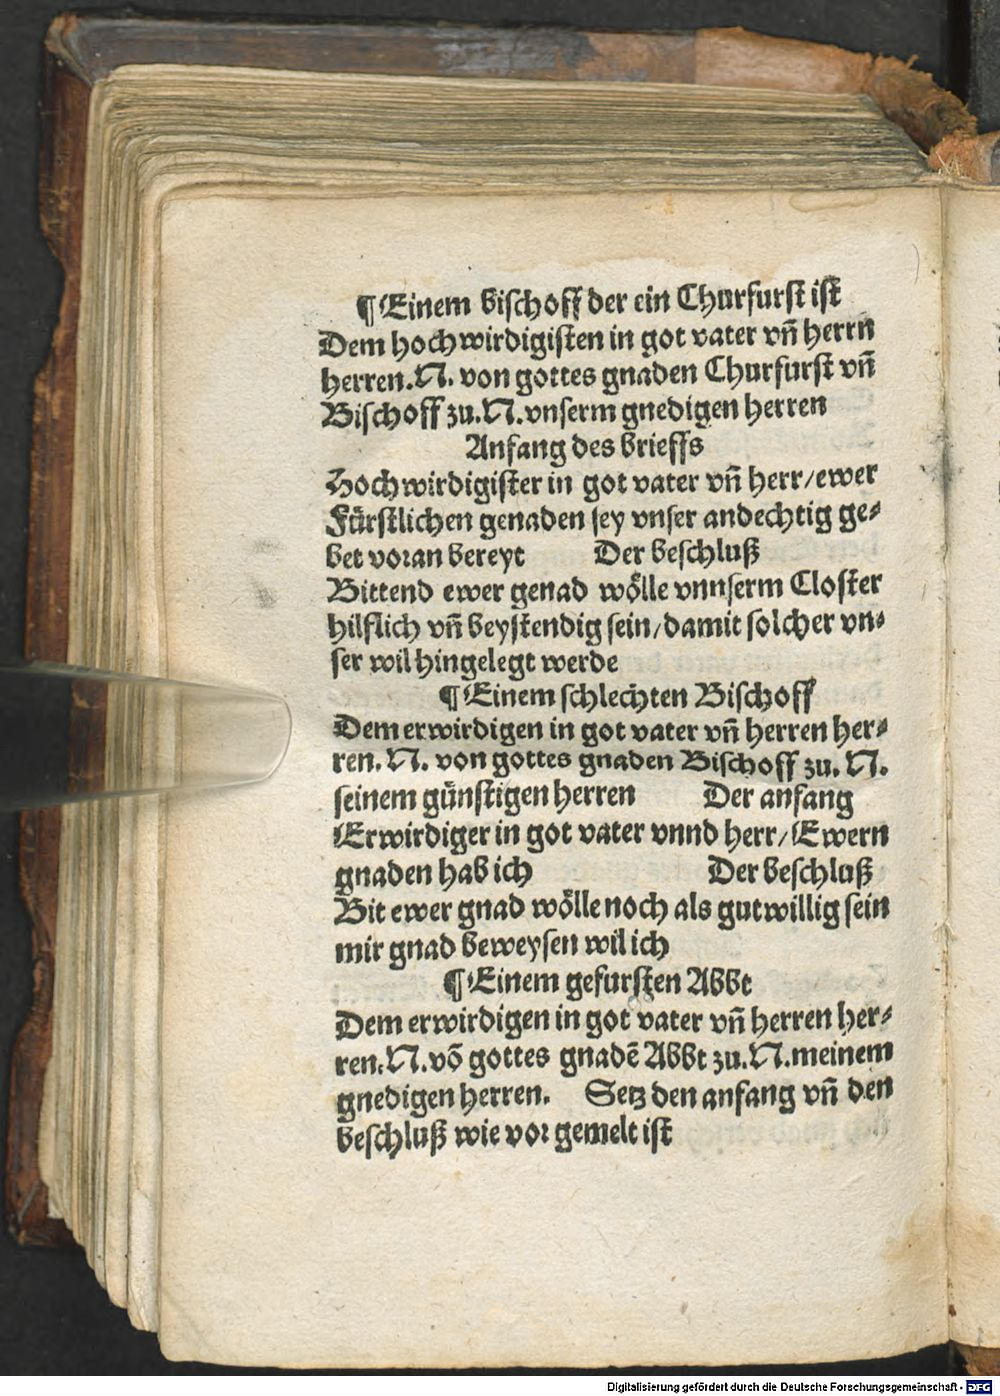 ¶ Einem bischoff der ein Churfurst ist
Dem hochwirdigisten in got vater vñ herrn
herren. N. von gottes gnaden Churfurst vñ
Bischoff zu. N. vnserm gnedigen herren
Anfang des brieffs
Hochwirdigister in got vater vñ herr/ewer
Fürstlichen genaden sey vnser andechtig ge⸗
bet voran bereyt Der beschluß
Bittend ewer genad wölle vnnserm Closter
hilflich vñ beystendig sein/damit solcher vn⸗
ser wil hingelegt werde
¶ Einem schlechten Bischoff
Dem erwirdigen in got vater vñ herren her⸗
ren. N. von gottes gnaden Bischoff zu. N.
seinem günstigen herren Der anfang
Erwirdiger in got vater vnnd herr/Ewern
gnaden hab ich Der beschluß
Bit ewer gnad wölle noch als gutwillig sein
mir gnad beweysen wil ich
¶ Einem gefursten Abbt
Dem erwirdigen in got vater vñ herren her⸗
ren. N. võ gottes gnadẽ Abbt zu. N. meinem
gnedigen herren. Setz den anfang vñ den
beschluß wie vor gemelt ist
Digitalisierung gefördert durch die Deutsche Forschungsgemeinschaft - DFG